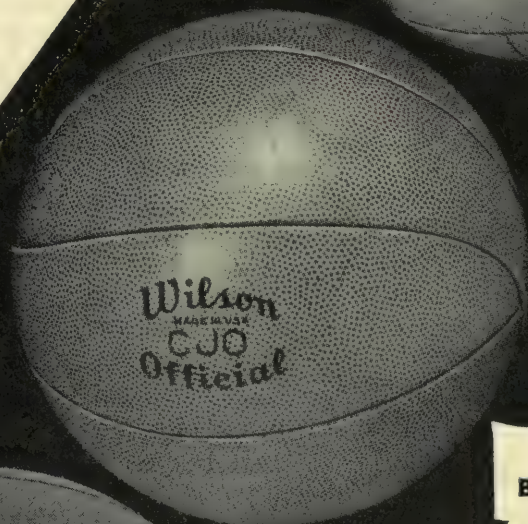 Wilson
MADE IN U.S.A.
CJO
Official